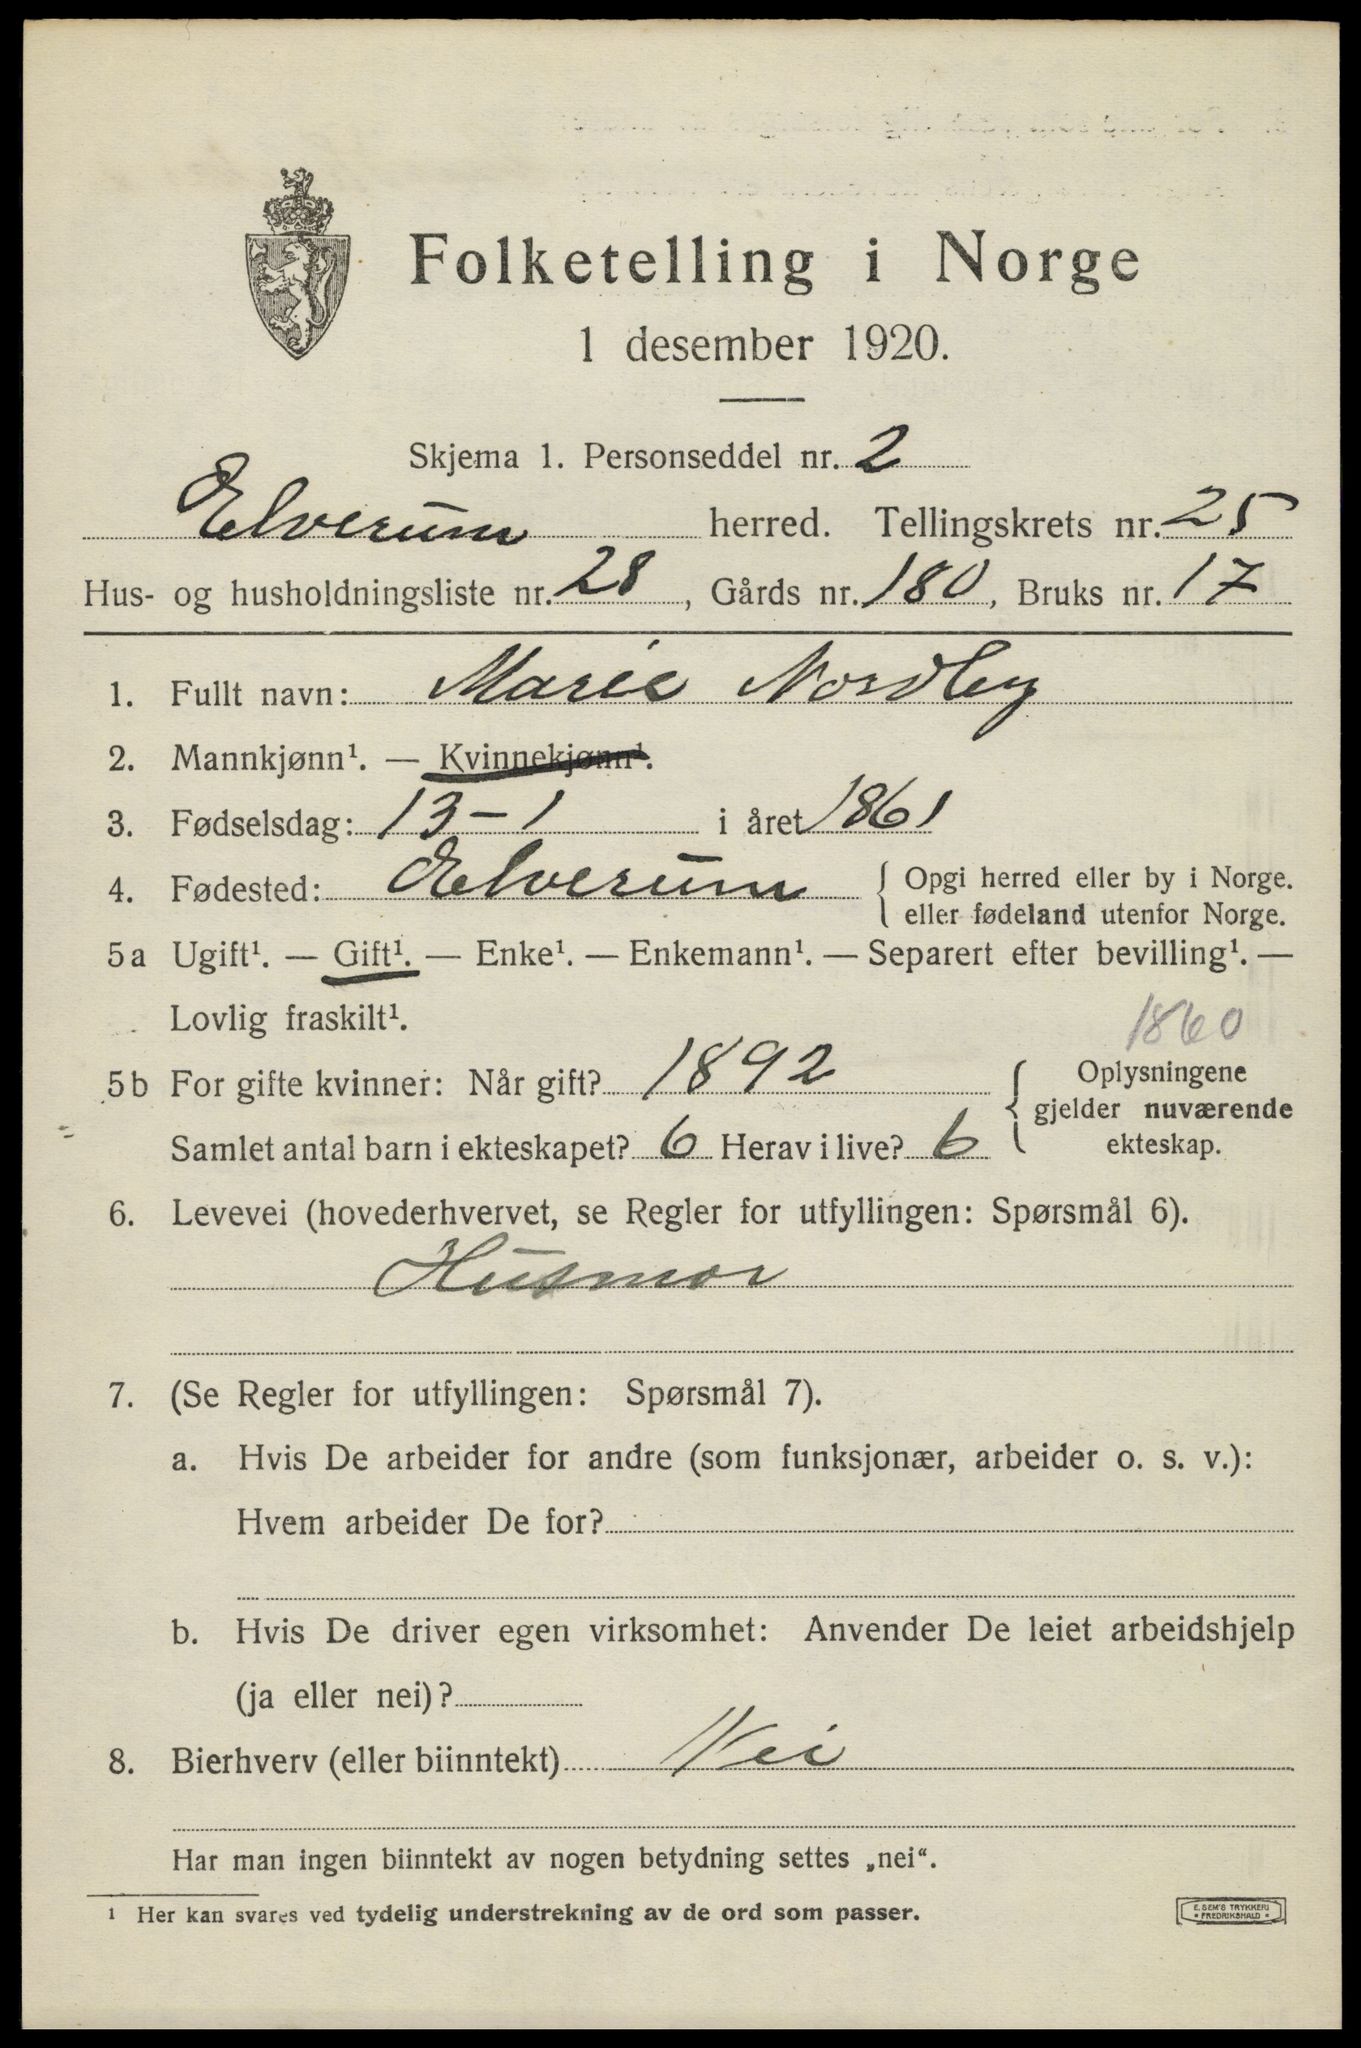 Folketelling i Norge
1 desember 1920.
Skjema 1. Personseddel nr. 2
Elverum herred. Tellingskrets nr. 25
Hus- og husholdningsliste nr. 28, Gårds nr. 180, Bruks nr. 17
1. Fullt navn: Marie Nordby
2. Mannkjønn¹. — Kvinnekjønn¹.
3. Fødselsdag: 13-1 i året 1861
4. Fødested: Elverum { Opgi herred eller by i Norge.
eller fødeland utenfor Norge.
5a Ugift¹. — Gift¹. — Enke¹. — Enkemann¹. — Separert efter bevilling¹. —
Lovlig fraskilt¹.
1860
5b For gifte kvinner: Når gift? 1892
Samlet antal barn i ekteskapet? 6 Herav i live? 6
{ Oplysningene
gjelder nuværende
ekteskap.
6. Levevei (hovederhvervet, se Regler for utfyllingen: Spørsmål 6).
Husmor
7. (Se Regler for utfyllingen: Spørsmål 7).
a. Hvis De arbeider for andre (som funksjonær, arbeider o. s. v.):
Hvem arbeider De for?
b. Hvis De driver egen virksomhet: Anvender De leiet arbeidshjelp
(ja eller nei)?
8. Bierhverv (eller biinntekt) Nei
Har man ingen biinntekt av nogen betydning settes „nei“.
¹ Her kan svares ved tydelig understrekning av de ord som passer.
E. SEM'S TRYKKERI
* FREDRIKSHALD *